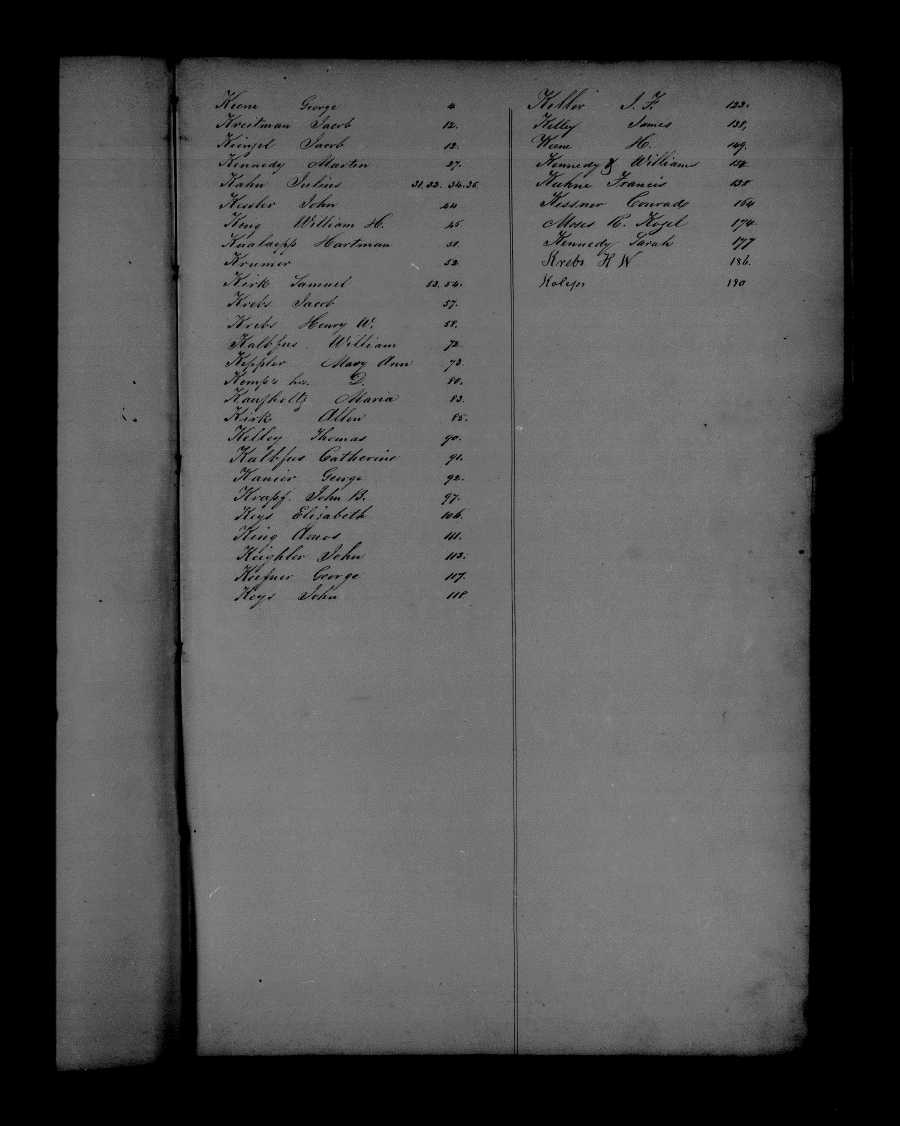 Keene George 4.
Kreitman Jacob 12.
Jacob 12.
Kennedy Martin 27.
Kahn Julius 31. 32. 34. 35.
Kesler John 44
King William H. 45
Hartman 51.
Krumer 52
Kirk Samuel 53. 54.
Krebs Jacob 57.
Krebs Henry W. 58.
Kalbfus William 72.
Keppler Mary Ann 73.
Kemp's D. 80.
Kaufholtz Maria 83.
Kirk Allen 85.
Kelley Thomas 90.
Kalbfus Catherine 91.
Kanier George 92.
Krapf. John B. 97.
Keys Elizabeth 106.
King Amos 111.
Keighler John 113.
Keefner George 117.
Keys John 118
Keller J. F. 123.
Kelley James 138,
Keene H. 149.
Kennedy & Williams 152.
Kuhne Francis 158
Kessner Conrade 164
Moses R. Kogel 174.
Kennedy Sarah 177
Krebs H W 186.
190